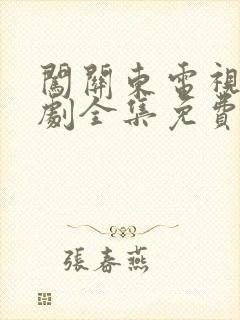 闖關東電視
劇全集免費
張春燕